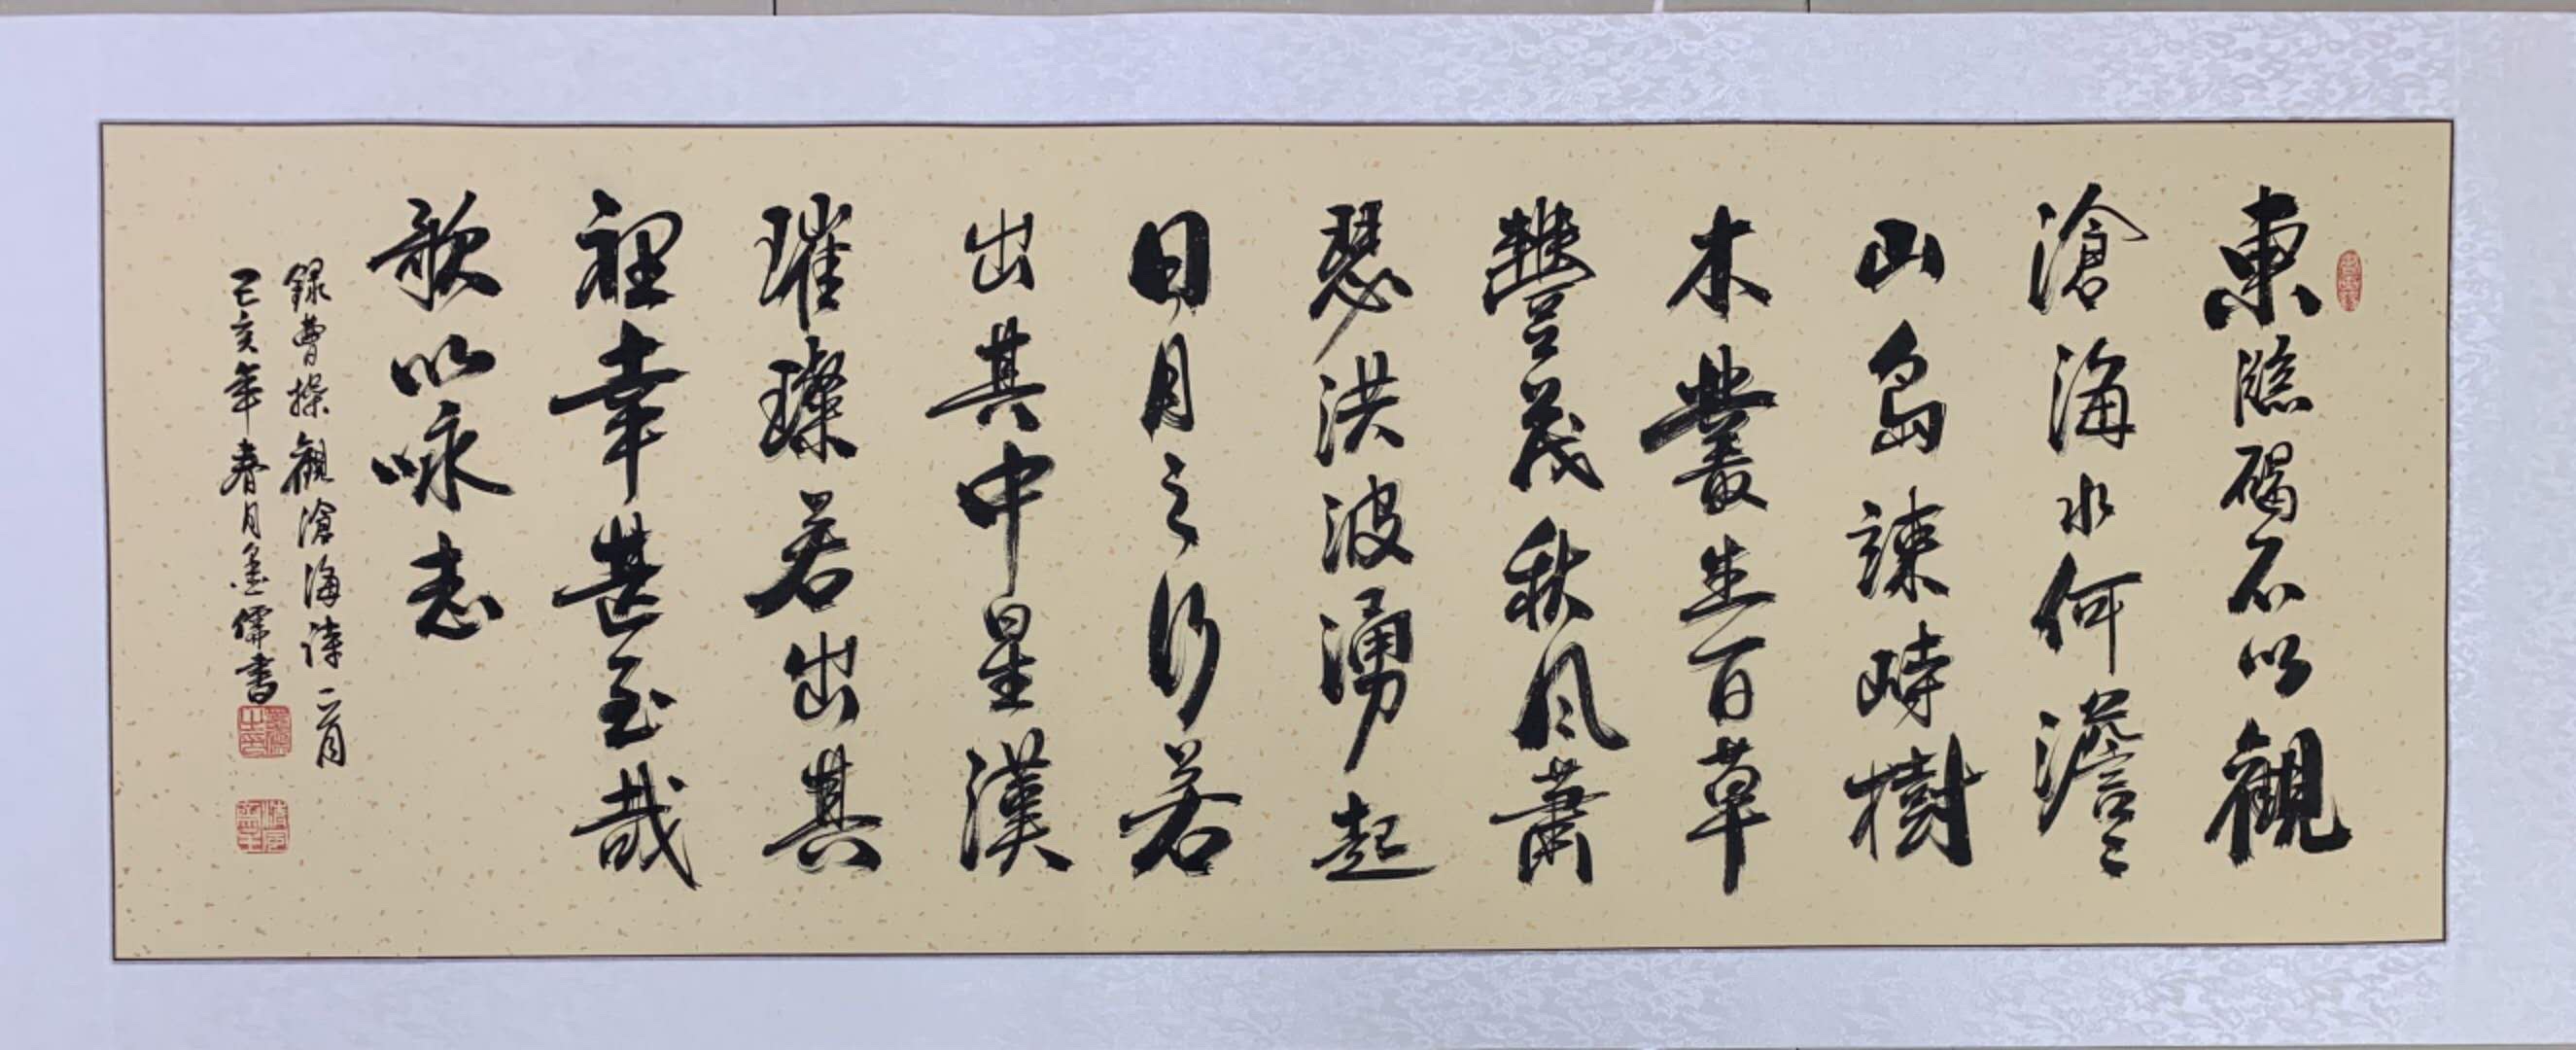 東臨碣石以觀
滄海水何澹々
山島竦峙樹
木叢生百草
豐茂秋風蕭
瑟洪波湧起
日月之行若
出其中星漢
璀璨若出其
裡幸甚至哉
歌以咏志
錄曹操觀滄海詩一首
己亥年春月墨儒書